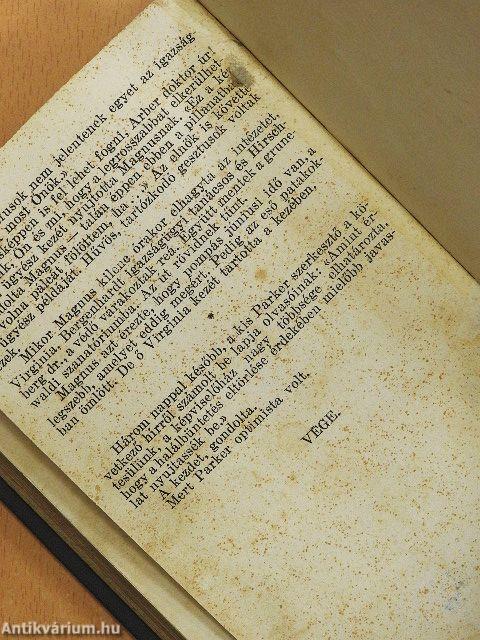 tusok nem jelentenek egyet az igazság
most Önök.»
képpen is fel lehet fogni, Arber doktor úr!
Ön és mi, hogy a legrosszabbal elkerülhet-
ügyész kezét nyujtotta Magnusnak. «Ez a ké-
dolta Magnus — talán éppen ebben a pillanatban
volna pálcát fölöttem, ha...» Az elnök is követte
ügyész példáját. Hűvös, tartózkodó gesztusok voltak
zek
Mikor Magnus kilenc órakor elhagyta az intézetet,
Virginia, Bergenhardt igazságügyi tanácsos és Hirsch-
berg dr. a védő várakoztak reá. Együtt mentek a grune-
waldi szanatóriumba. Az út rövidnek tűnt.
Magnus azt érezte, hogy pompás júniusi idő van, a
legszebb, amelyet eddig megért. Pedig az eső patakok-
ban ömlött. De ő Virginia kezét tartotta a kezében.
Három nappal később, a kis Parker szerkesztő a kö-
vetkező hírről számolt be lapja olvasóinak: «Amint ér-
tesülünk, a képviselőház nagy többsége elhatározta,
hogy a halálbüntetés eltörlése érdekében mielőbb javas-
lat nyujtassék be.»
A kezdet, gondolta.
Mert Parker optimista volt.
VÉGE.
Antikvárium.hu